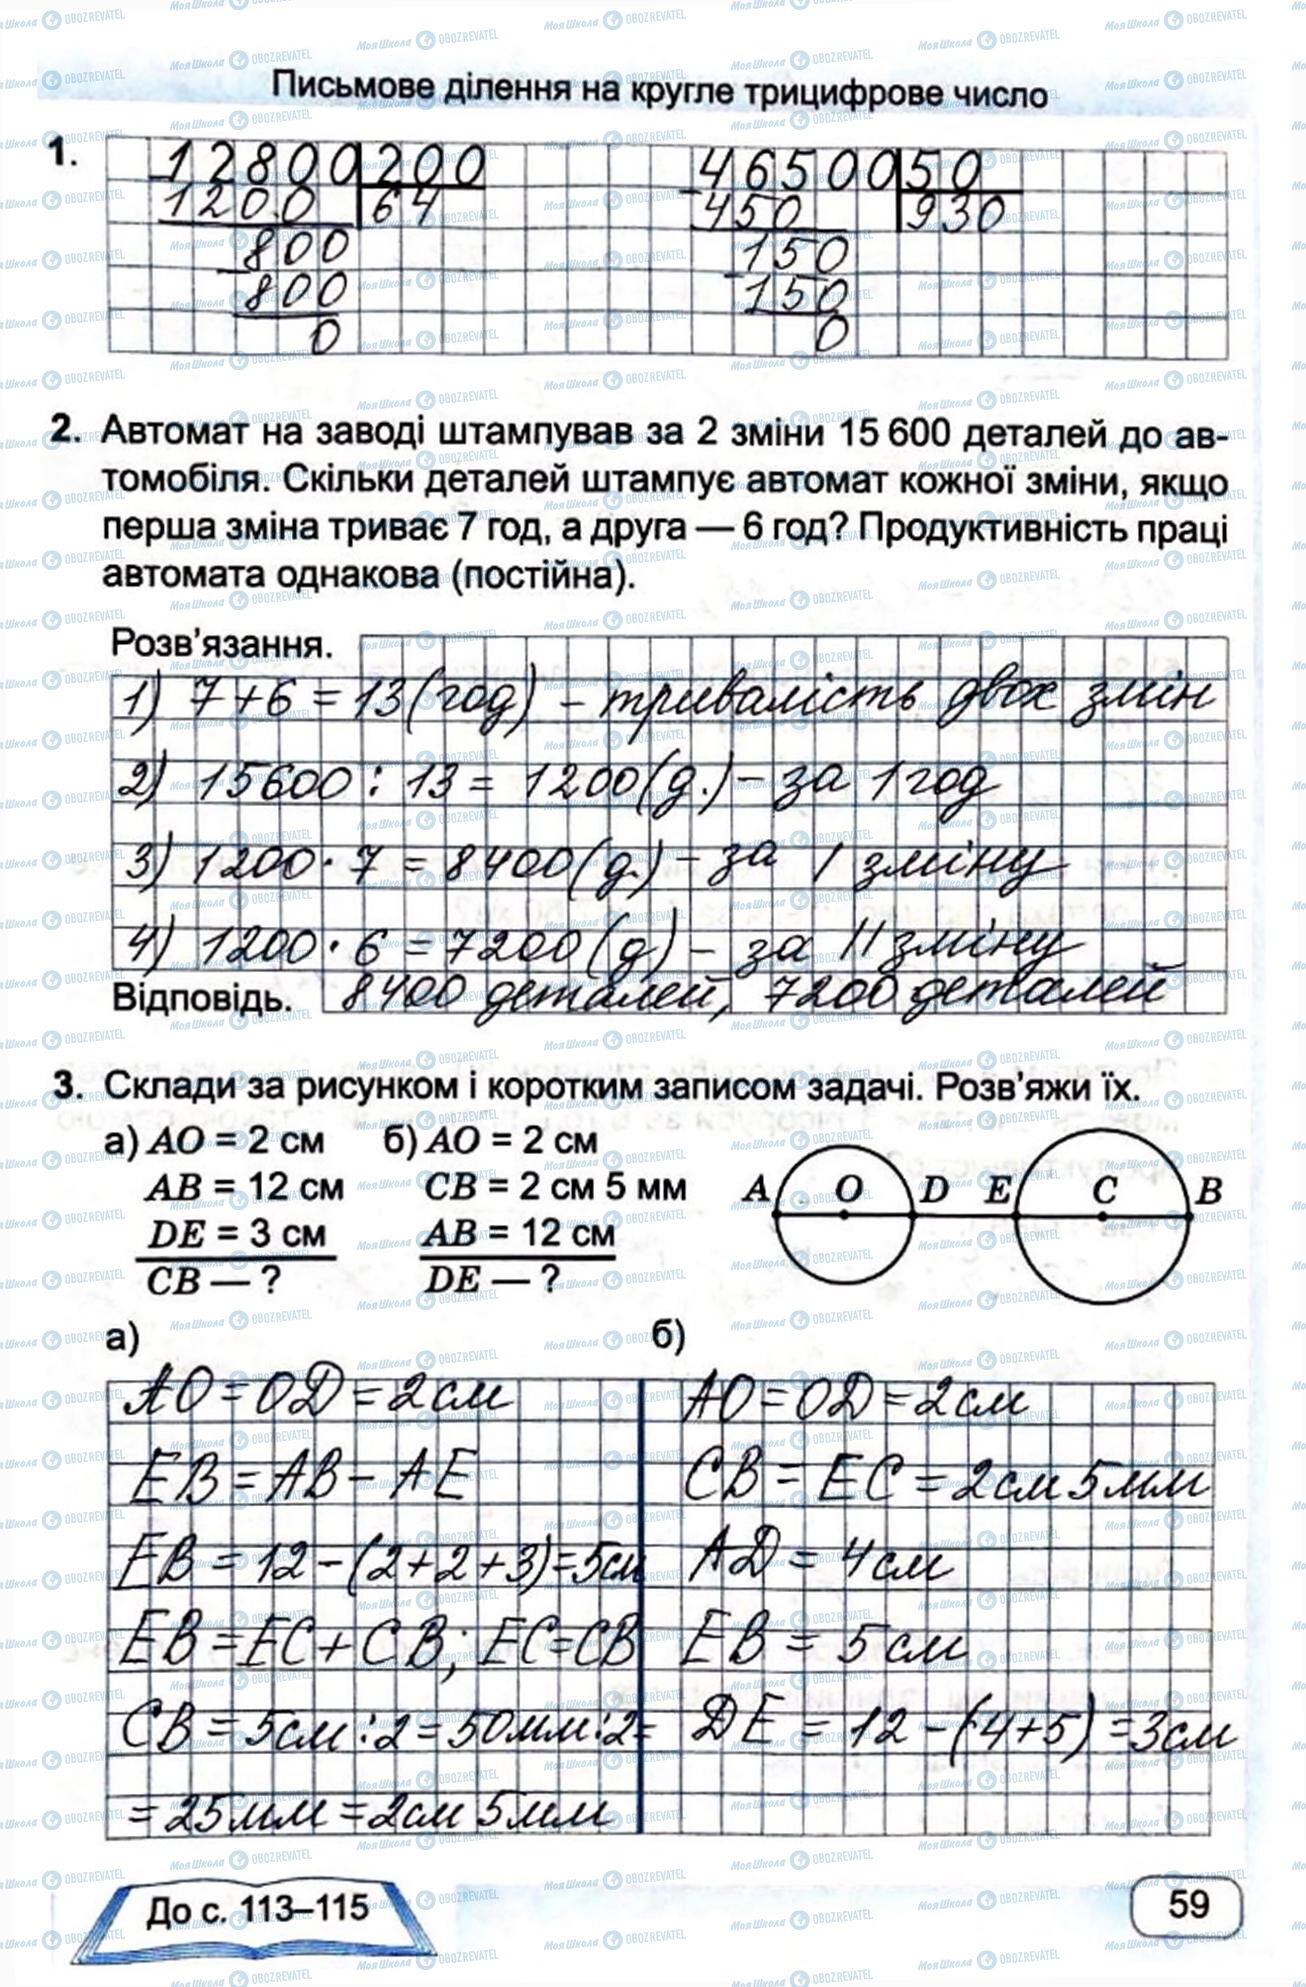 Письмове ділення на кругле трицифрове число
1.
12800 200
1200 64
800
800
0
46500 50
450 930
150
150
0
2. Автомат на заводі штампував за 2 зміни 15 600 деталей до ав-
томобіля. Скільки деталей штампує автомат кожної зміни, якщо
перша зміна триває 7 год, а друга — 6 год? Продуктивність праці
автомата однакова (постійна).
Розв'язання.
1) 7 + 6 = 13 (год) – тривалість двох змін
2) 15600 : 13 = 1200 (д.) – за 1 год
3) 1200 · 7 = 8400 (д.) – за I зміну
4) 1200 · 6 = 7200 (д) – за II зміну
Відповідь. 8400 деталей, 7200 деталей
3. Склади за рисунком і коротким записом задачі. Розв'яжи їх.
а) AO = 2 см
AB = 12 см
DE = 3 см
CB — ?
б) AO = 2 см
CB = 2 см 5 мм
AB = 12 см
DE — ?
A O D E C B
а)
AO = OD = 2 см
EB = AB – AE
EB = 12 – (2 + 2 + 3) = 5 см
EB = EC + CB; EC = CB
CB = 5 см : 2 = 50 мм : 2 =
= 25 мм = 2 см 5 мм
б)
AO = OD = 2 см
CB = EC = 2 см 5 мм
AD = 4 см
EB = 5 см
DE = 12 – (4 + 5) = 3 см
До с. 113–115
59
Моя Школа OBOZREVATEL